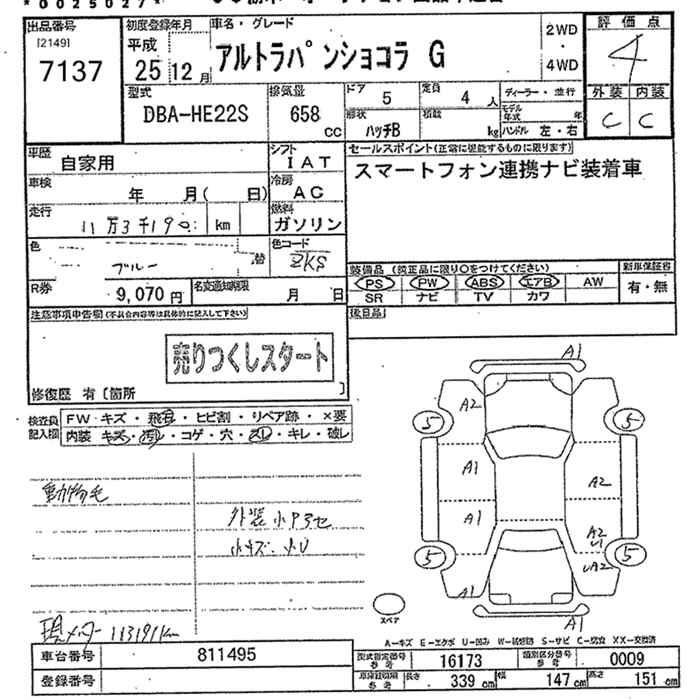 *0025027*
出品番号
[2149]
7137
初度登録年月
平成
25 12月
車名・グレード
アルトラパンショコラ G
2WD
・
4WD
評価点
4
外装 内装
C C
型式
DBA-HE22S
排気量
658
cc
ドア
5
定員
4 人
ディーラー・並行
形状
ハッチB
積載
kg
モデル年式 年
ハンドル 左・右
車歴
自家用
シフト
IAT
車検
年 月( 日)
冷房
AC
走行
11万3千19
km
燃料
ガソリン
色
ブルー
替
色コード
ZKS
R券
9,070 円
名変通知期限
月 日
セールスポイント(正常に堪能するものに限ります)
スマートフォン連携ナビ装着車
装備品 (純正品に限り○をつけてください)
新車保証書
PS PW ABS エアB AW
SR ナビ TV カワ
有・無
後日品
注意事項申告欄(不具合内容等は具体的に記入して下さい)
売りつくしスタート
修復歴 有〔箇所 〕
検査員記入欄
FW キズ・飛石・ヒビ割・リペア跡・×要
内装 キズ・汚レ・コゲ・穴・スレ・キレ・破レ
動物毛
外装小アラセ
小キズ、小U
現メーター 113191km
A1
A2
5
5
A1
A2
A1
A2
U1
5
5
A1
UA2
A1
スペア
A-キズ E-エクボ U-凹み W-補修跡 S-サビ C-腐食 XX-交換済
車台番号
811495
登録番号
型式指定番号 参考
16173
類別区分番号 参考
0009
車庫証明用 参考
長さ
339 cm
幅
147 cm
高さ
151 cm